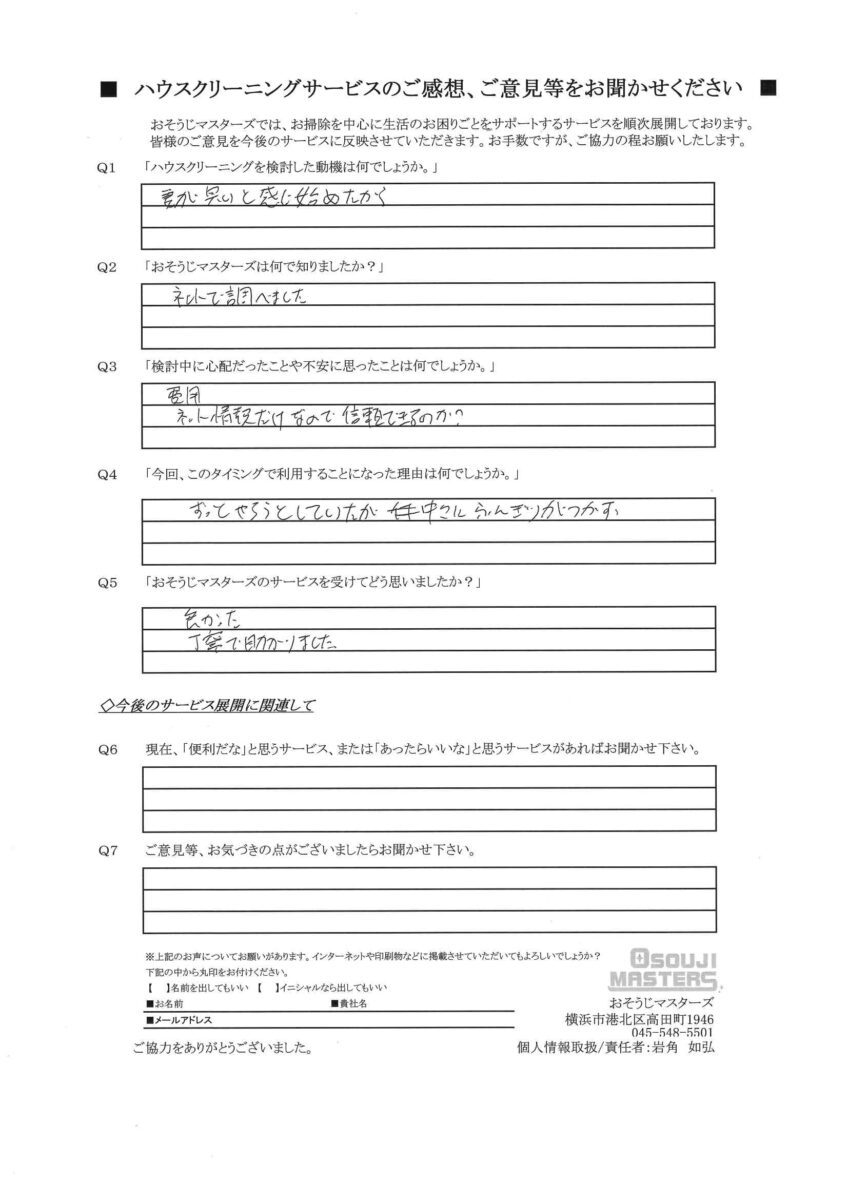 ■ ハウスクリーニングサービスのご感想、ご意見等をお聞かせください ■
おそうじマスターズでは、お掃除を中心に生活のお困りごとをサポートするサービスを順次展開しております。
皆様のご意見を今後のサービスに反映させていただきます。お手数ですが、ご協力の程お願いしたします。
Q1 「ハウスクリーニングを検討した動機は何でしょうか。」
と感じ始めたから
Q2 「おそうじマスターズは何で知りましたか?」
ネットで調べました
Q3 「検討中に心配だったことや不安に思ったことは何でしょうか。」
費用
ネット情報だけなので信頼できるのか?
Q4 「今回、このタイミングで利用することになった理由は何でしょうか。」
ずっとやろうとしていたが ふんぎりがつかず
Q5 「おそうじマスターズのサービスを受けてどう思いましたか?」
良かった
丁寧で助かりました
◇今後のサービス展開に関連して
Q6 現在、「便利だな」と思うサービス、または「あったらいいな」と思うサービスがあればお聞かせ下さい。
Q7 ご意見等、お気づきの点がございましたらお聞かせ下さい。
※上記のお声についてお願いがあります。インターネットや印刷物などに掲載させていただいてもよろしいでしょうか?
下記の中から丸印をお付けください。
【 】名前を出してもいい 【 】イニシャルなら出してもいい
■お名前 ■貴社名
■メールアドレス
ご協力をありがとうございました。
OSOUJI
MASTERS
おそうじマスターズ
横浜市港北区高田町1946
045-548-5501
個人情報取扱/責任者:岩角 如弘